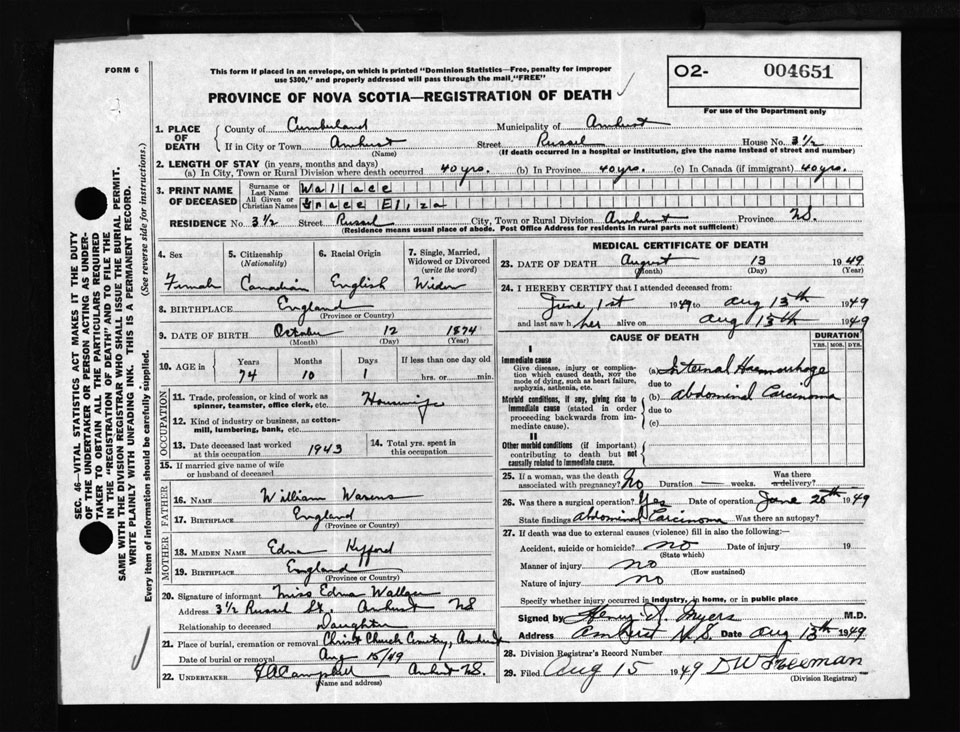 FORM 6
This form if placed in an envelope, on which is printed "Dominion Statistics—Free, penalty for improper
use $300," and properly addressed will pass through the mail, "FREE"
PROVINCE OF NOVA SCOTIA—REGISTRATION OF DEATH
O2- 004651
For use of the Department only
1. PLACE OF DEATH
County of Cumberland Municipality of Amherst
If in City or Town Amherst Street Russel House No. 3½
(Name) (If death occurred in a hospital or institution, give the name instead of street and number)
2. LENGTH OF STAY (in years, months and days)
(a) In City, Town or Rural Division where death occurred 40 yrs. (b) In Province 40 yrs. (c) In Canada (if immigrant) 40 yrs.
3. PRINT NAME OF DECEASED
Surname or Last Name Wallace
All Given or Christian Names Grace Eliza
RESIDENCE No 3½ Street Russel City, Town or Rural Division Amherst Province N.S.
(Residence means usual place of abode. Post Office Address for residents in rural parts not sufficient)
4. Sex
Female
5. Citizenship
(Nationality)
Canadian
6. Racial Origin
English
7. Single, Married,
Widowed or Divorced
(write the word)
Widow
8. BIRTHPLACE England
(Province or Country)
9. DATE OF BIRTH October 12 1874
(Month) (Day) (Year)
10. AGE in
Years Months Days If less than one day old
74 10 1 hrs. or min.
OCCUPATION
11. Trade, profession, or kind of work as
spinner, teamster, office clerk, etc. Housewife
12. Kind of industry or business, as cotton-
mill, lumbering, bank, etc.
13. Date deceased last worked
at this occupation 1943
14. Total yrs. spent in
this occupation
15. If married give name of wife
or husband of deceased
FATHER
16. NAME William Warens
17. BIRTHPLACE England
(Province or Country)
MOTHER
18. MAIDEN NAME Edna
19. BIRTHPLACE England
(Province or Country)
20. Signature of informant Miss Edna Wallace
Address 3½ Russel St. Amherst NS
Relationship to deceased Daughter
21. Place of burial, cremation or removal Christ Church Cemetry, Amherst
Date of burial or removal Aug 15/49
22. UNDERTAKER Campbell Amherst N.S.
(Name and address)
MEDICAL CERTIFICATE OF DEATH
23. DATE OF DEATH August 13 1949
(Month) (Day) (Year)
24. I HEREBY CERTIFY that I attended deceased from:
June 1st 1949 to Aug 13th 1949
and last saw her alive on Aug 13th 1949
CAUSE OF DEATH
DURATION
YRS. MOS. DYS.
I
Immediate cause
Give disease, injury or complica-
tion which caused death, NOT the
mode of dying, such as heart failure,
asphyxia, asthenia, etc.
(a) Internal Haemorrhage
due to
Morbid conditions, if any, giving rise to
immediate cause (stated in order
proceeding backwards from im-
mediate cause).
(b) Abdominal Carcinoma
due to
(c)
II
Other morbid conditions (if important)
contributing to death but not
causally related to immediate cause.
25. If a woman, was the death
associated with pregnancy? No Duration — weeks. Was there a delivery?
26. Was there a surgical operation? Yes Date of operation June 28th 1949
State findings Abdominal Carcinoma Was there an autopsy?
27. If death was due to external causes (violence) fill in also the following:—
Accident, suicide or homicide? no Date of injury 19
(State which)
Manner of injury no
(How sustained)
Nature of injury no
Specify whether injury occurred in industry, in home, or in public place
Signed by Henry A. Myers M.D.
Address Amherst N.S. Date Aug 13th 1949
28. Division Registrar's Record Number
29. Filed Aug 15 1949 D W Freeman
(Division Registrar)
SEC. 46—VITAL STATISTICS ACT MAKES IT THE DUTY
OF THE UNDERTAKER OR PERSON ACTING AS UNDER-
TAKER TO OBTAIN ALL THE PARTICULARS REQUIRED
IN THE "REGISTRATION OF DEATH" AND TO FILE THE
SAME WITH THE DIVISION REGISTRAR WHO SHALL ISSUE THE BURIAL PERMIT.
WRITE PLAINLY WITH UNFADING INK. THIS IS A PERMANENT RECORD.
Every item of information should be carefully supplied. (See reverse side for instructions.)